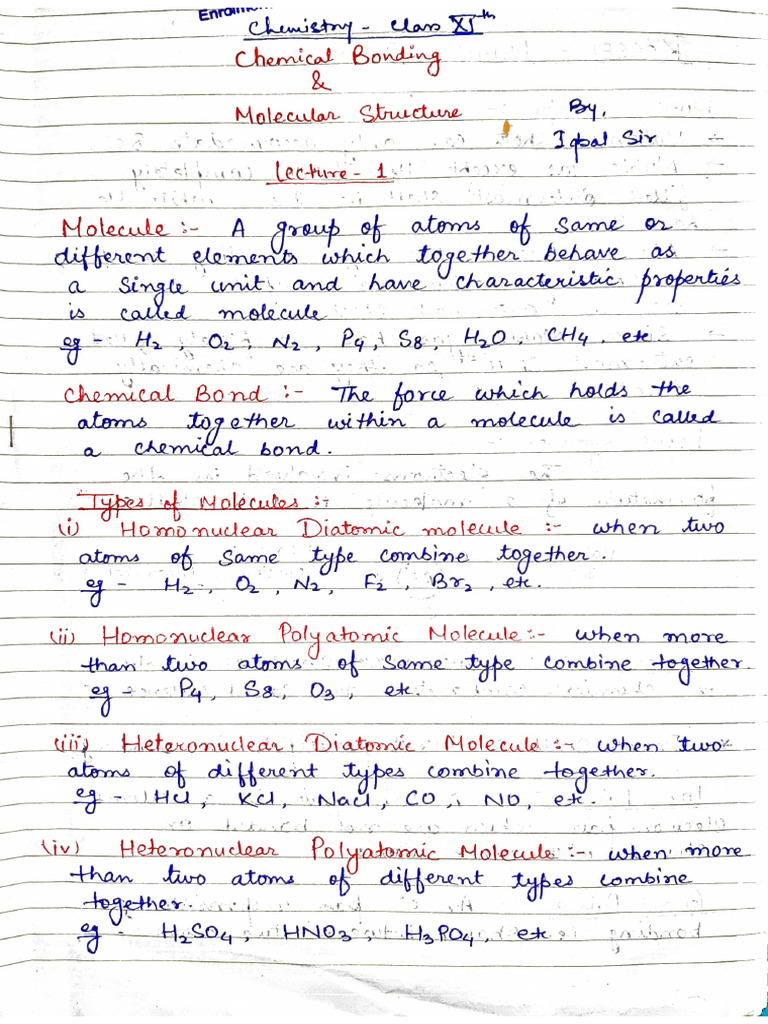 Chemistry - Class XIth
Chemical Bonding
&
Molecular Structure
By,
Iqbal Sir
Lecture - 1
Molecule :- A group of atoms of same or
different elements which together behave as
a single unit and have characteristic properties
is called molecule
eg - H2, O2, N2, P4, S8, H2O, CH4, etc
Chemical Bond :- The force which holds the
atoms together within a molecule is called
a chemical bond.
Types of Molecules :-
(i) Homonuclear Diatomic molecule :- when two
atoms of same type combine together.
eg - H2, O2, N2, F2, Br2, etc.
(ii) Homonuclear Polyatomic Molecule :- when more
than two atoms of same type combine together.
eg - P4, S8, O3, etc.
(iii) Heteronuclear Diatomic Molecule :- when two
atoms of different types combine together.
eg - HCl, KCl, NaCl, CO, NO, etc.
(iv) Heteronuclear Polyatomic Molecule :- when more
than two atoms of different types combine
together.
eg - H2SO4, HNO3, H3PO4, etc